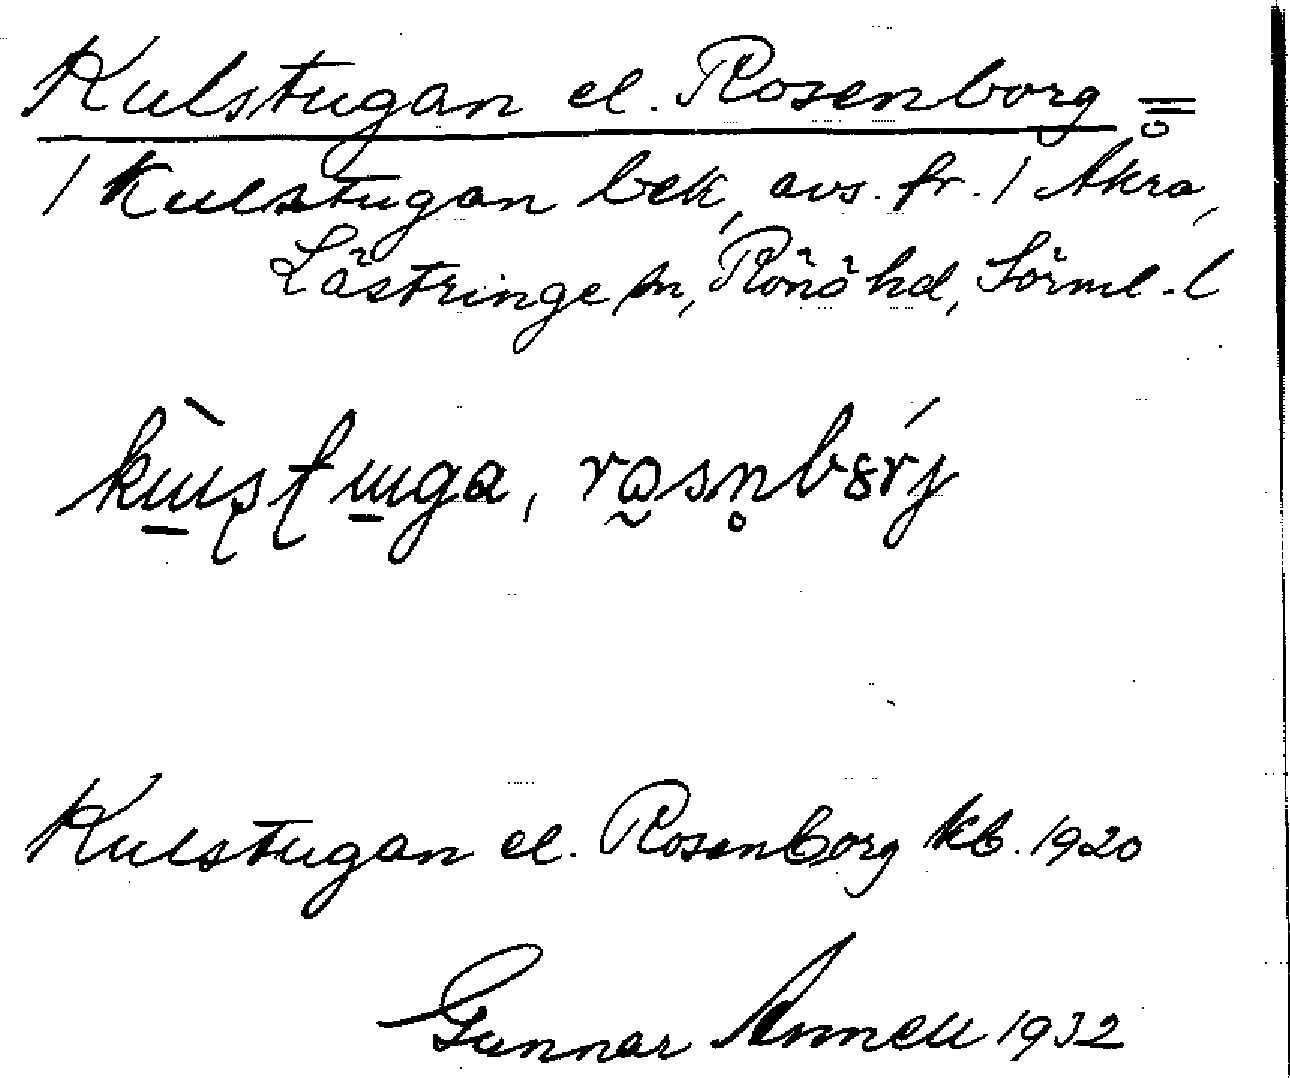 Kulstugan el. Rosenborg =
1 Kulstugan bek, avs. fr. 1 Åkra,
Lästringe sn, Rönö hd, Sörml. l
Kulstugan el. Rosenborg kb. 1920
Gunnar Annell 1932